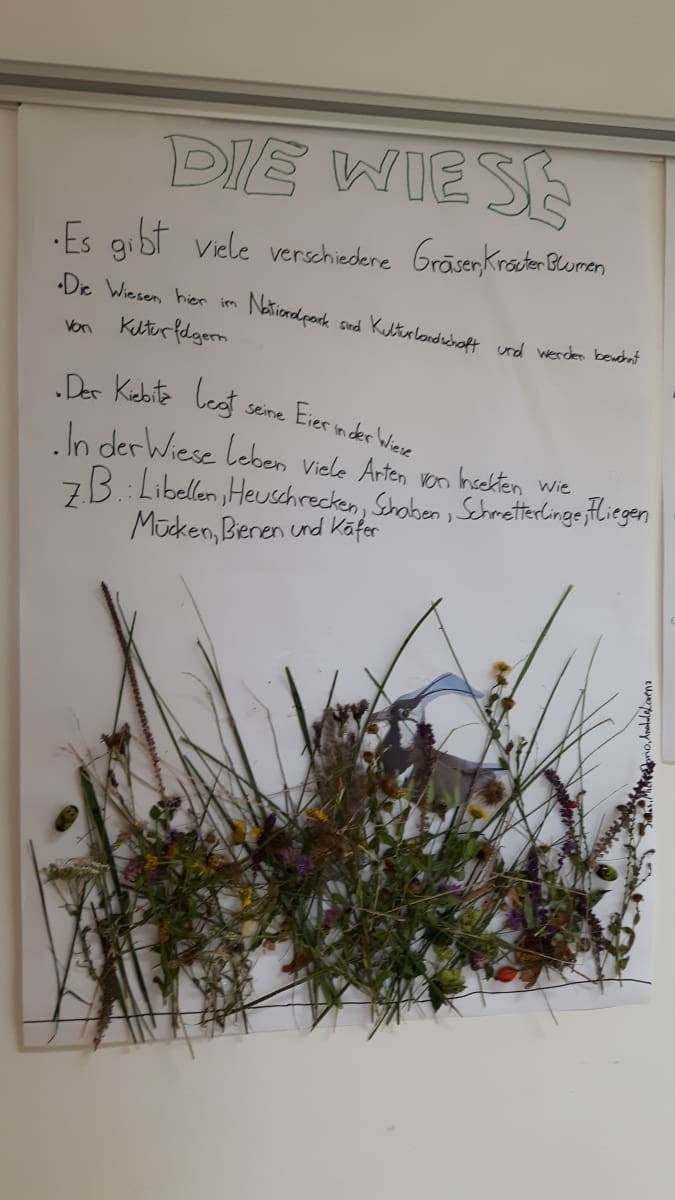 DIE WIESE
· Es gibt viele verschiedene Gräser, Kräuter Blumen
· Die Wiesen hier im Nationalpark sind Kulturlandschaft und werden bewohnt
von Kulturfolgern
· Der Kiebitz legt seine Eier in der Wiese
· In der Wiese leben viele Arten von Insekten wie
z.B.: Libellen, Heuschrecken, Schaben, Schmetterlinge, Fliegen
Mücken, Bienen und Käfer